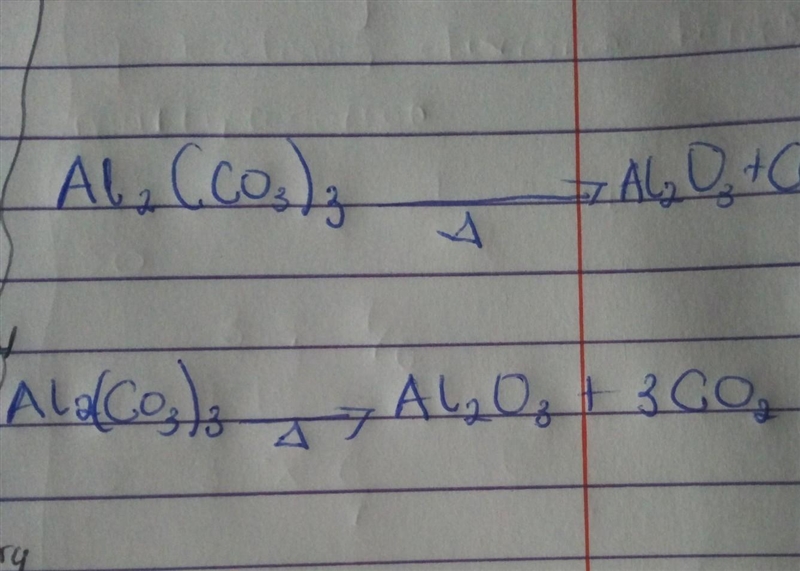 Al₂(CO₃)₃ → Al₂O₃ + C
Δ
Al₂(CO₃)₃ → Al₂O₃ + 3CO₂
Δ
ry